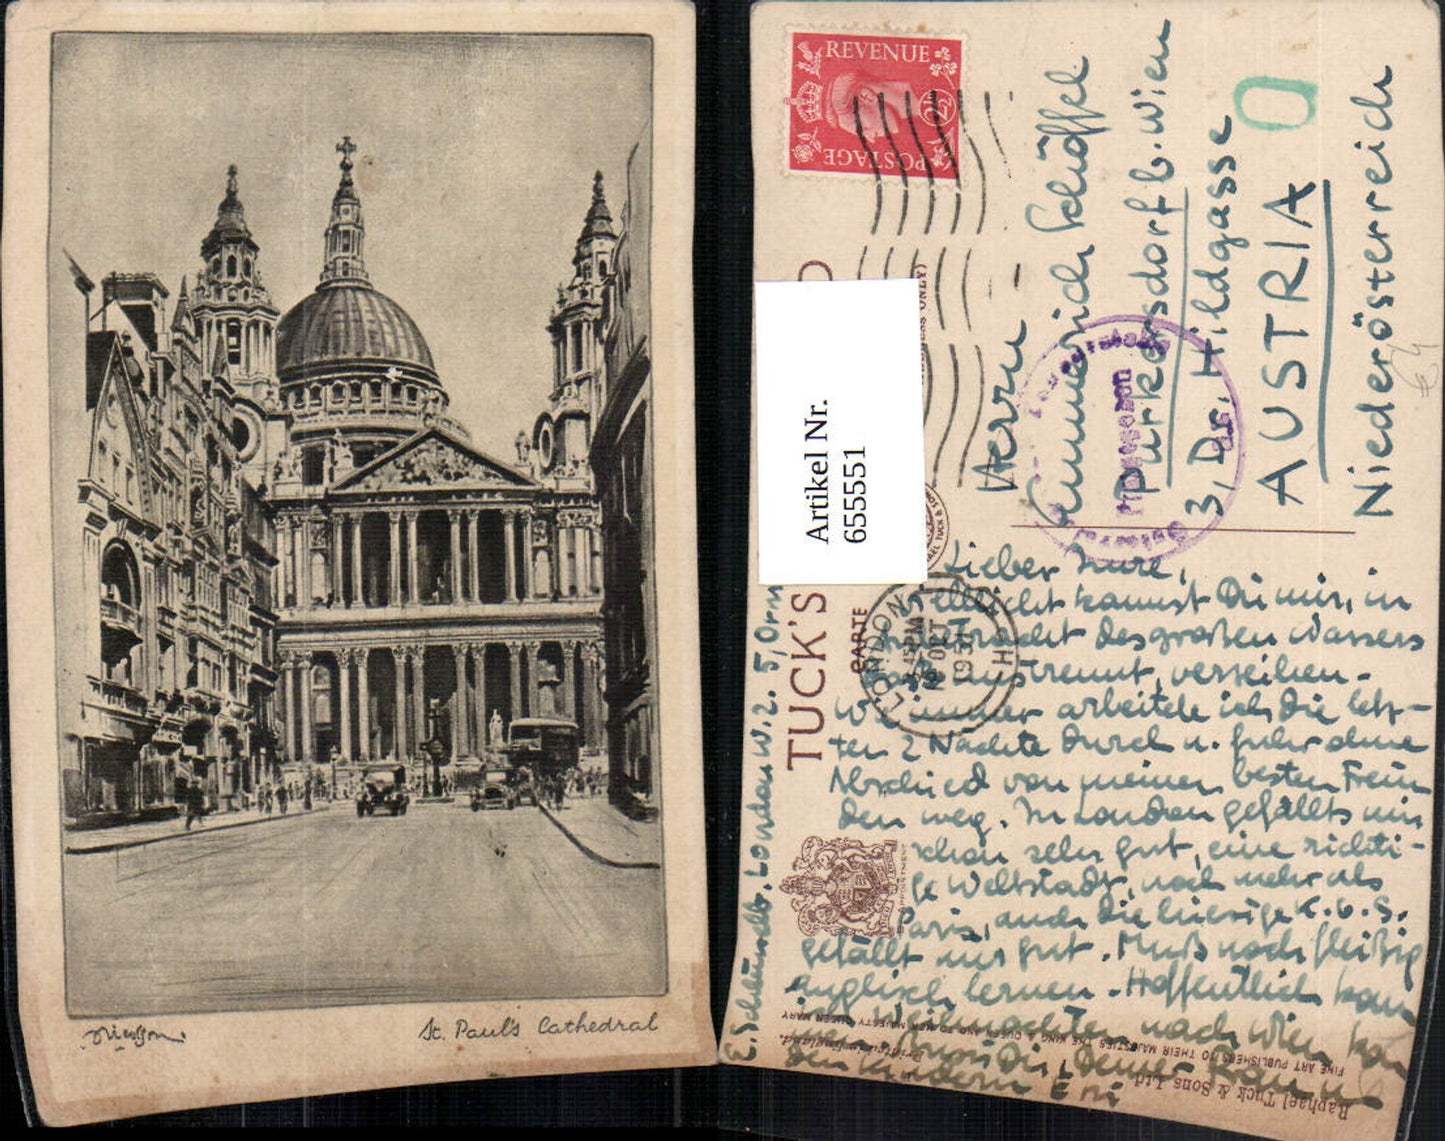 St. Paul's Cathedral
REVENUE
2½
POSTAGE
TUCK'S
CARTE
ADDRESS ONLY)
Artikel Nr.
655551
LONDON
3.45PM
OCT
1951
Herrn
Schöffel
Purkersdorf b. Wien
3, Dr. Hildgasse
AUSTRIA
Niederösterreich
Lieber
Vielleicht kannst Du mir, in
Betracht des großen Wassers
das uns trennt, verzeihen -
Wie immer arbeitete ich die letz-
ten 2 Nächte durch u. fuhr ohne
Abschied von meinen besten Freun
den weg. In London gefällts mir
schon sehr gut, eine richti-
ge Weltstadt, noch mehr als
Paris, auch die hiesige
gefällt mir gut. Muß noch fleißig
englisch lernen. Hoffentlich kann
Weihnachten nach Wien
Deiner Frau u
den Kindern
London W.2. 5,
Printed in England.
FINE ART PUBLISHERS TO THEIR MAJESTIES THE KING & QUEEN AND TO HER MAJESTY QUEEN MARY
Raphael Tuck & Sons Ltd